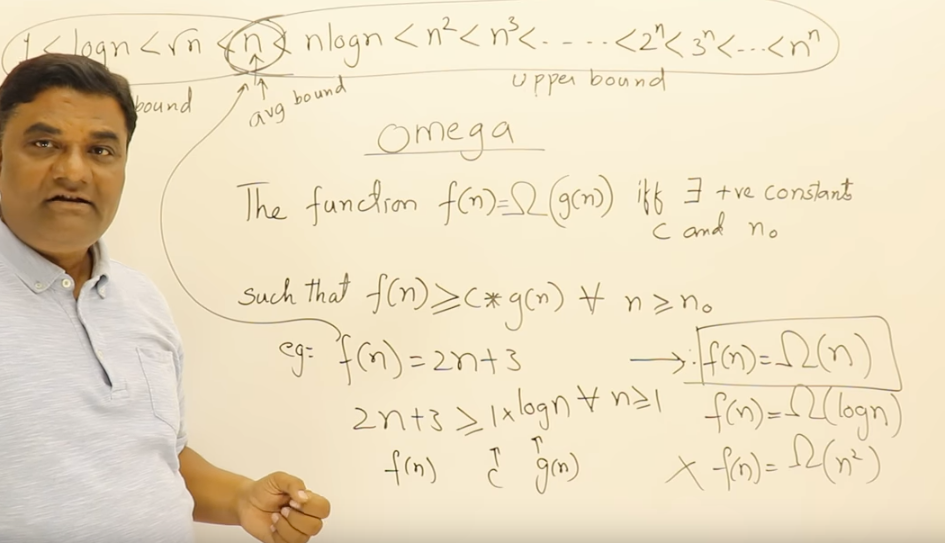 1 < logn < √n < n < nlogn < n² < n³ < - - - - - < 2ⁿ < 3ⁿ < - - - < nⁿ
bound avg bound upper bound
Omega
The function f(n)=Ω(g(n)) iff ∃ +ve constants
c and n₀
such that f(n) ≥ c * g(n) ∀ n ≥ n₀
eg:- f(n) = 2n+3 → ∴ f(n) = Ω(n)
2n+3 ≥ 1 × logn ∀ n ≥ 1 f(n) = Ω(logn)
f(n) ↑ c ↑ g(n) × f(n) = Ω(n²)